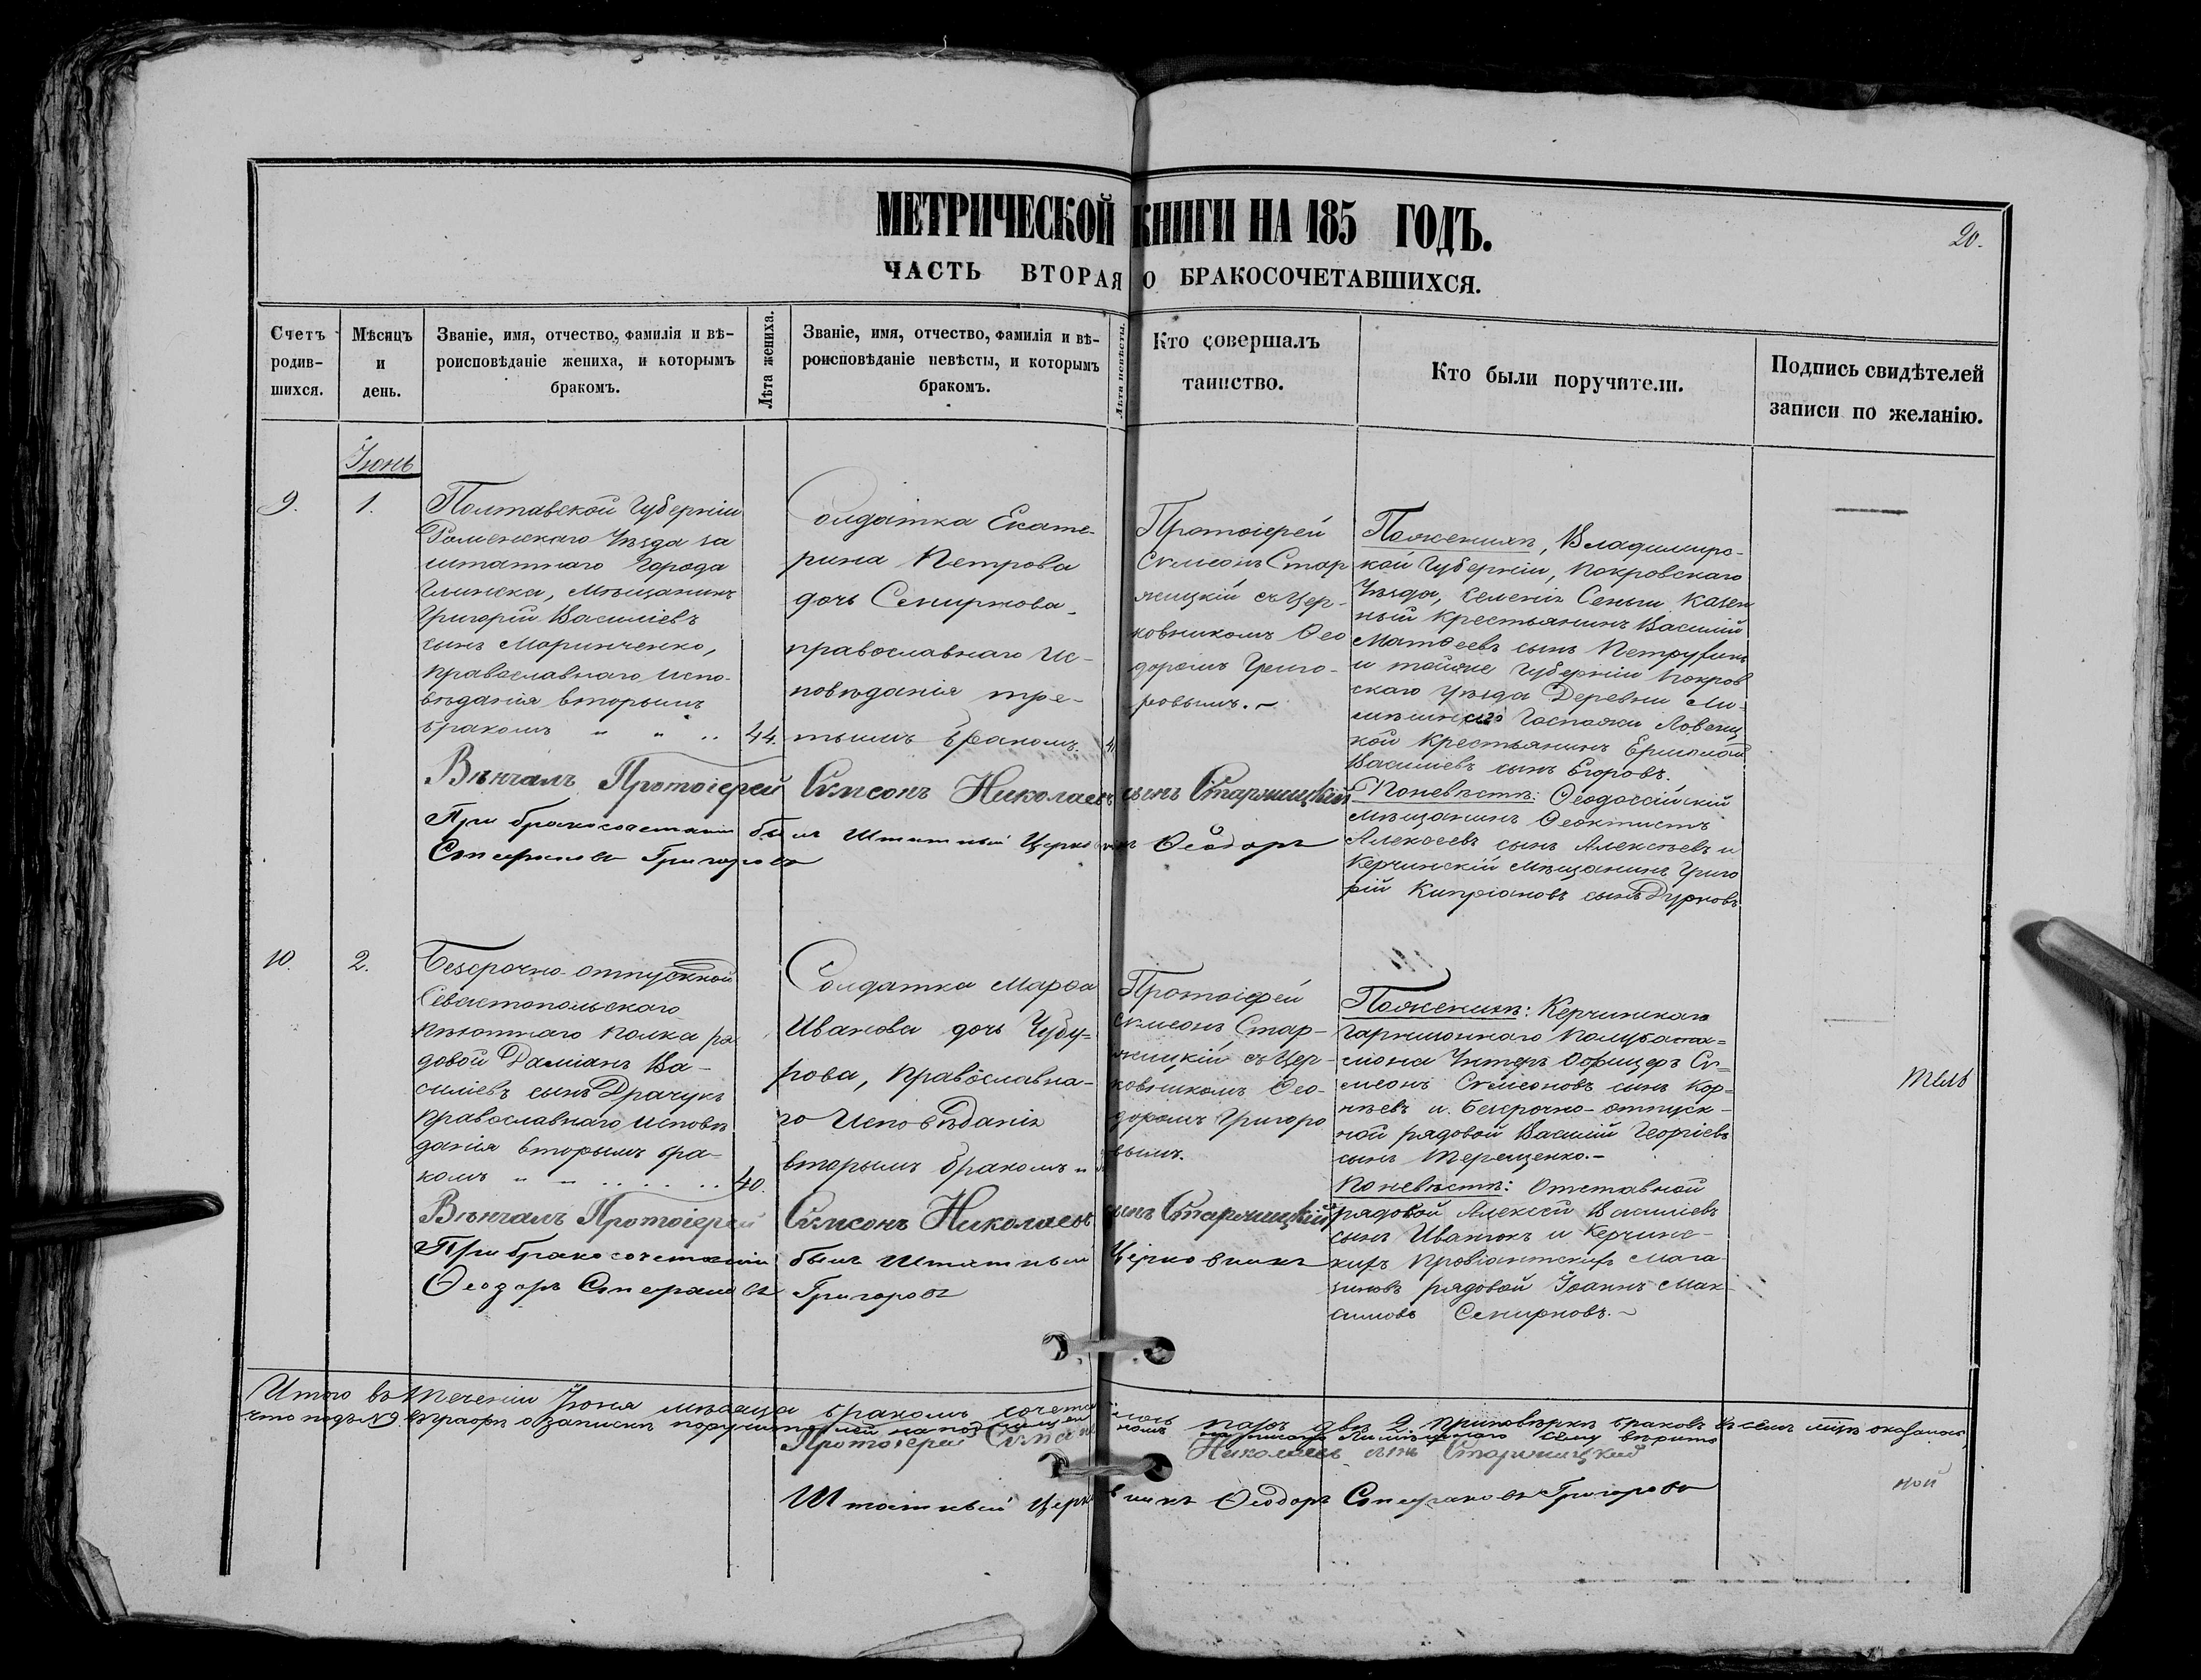 МЕТРИЧЕСКОЙ КНИГИ НА 185 ГОДЪ.
20.
ЧАСТЬ ВТОРАЯ О БРАКОСОЧЕТАВШИХСЯ.
Счетъ
родив-
шихся.
Мѣсяцъ
и
день.
Званіе, имя, отчество, фамилія и вѣ-
роисповѣданіе жениха, и которымъ
бракомъ.
Лѣта жениха.
Званіе, имя, отчество, фамилія и вѣ-
роисповѣданіе невѣсты, и которымъ
бракомъ.
Лѣта невѣсты.
Кто совершалъ
таинство.
Кто были поручители.
Подпись свидѣтелей
записи по желанію.
Іюнь
9.
1.
Полтавской Губерніи
Роменскаго Уѣзда за
штатнаго Города
Глинска, Мѣщанинъ
Григорій Василіевъ
сынъ Маринченко,
православнаго испо-
вѣданія вторымъ
бракомъ " " "
44.
Солдатка Екате-
рина Петрова
дочь Семирнова
православнаго Ис-
повѣданія тре-
тьимъ бракомъ.
Протоіерей
Сѵмеонъ Стар
жицкій съ Цер-
ковникомъ Ѳео
доромъ Григо-
ровымъ.
По женихѣ, Владимирс-
кой Губерніи, Покровскаго
Уѣзда, Селенія Сеньги казен
ный крестьянинъ Василій
Матѳеевъ сынъ Петрухинъ
и тойже Губерніи Покров
скаго Уѣзда Деревни
Госпожи
кой крестьянинъ Ермолай
Васильевъ сынъ Егоровъ.
По невѣстѣ: Ѳеодосійскій
мѣщанинъ Ѳеоктистъ
Алексеевъ сынъ Алексѣевъ и
Керчинскій мѣщанинъ Григо
рій Кипріановъ сынъ Дурновъ
Вѣнчалъ Протоіерей Сѵмеонъ Николаевъ сынъ Старжицкій
При бракосочетаніи былъ Штатный Церковникъ Ѳеодоръ
Стефановъ Григоровъ
10.
2.
Безсрочно-отпускной
Севастопольскаго
пѣхотнаго полка ря
довой Даміанъ Ва-
силіевъ сынъ Драчукъ
православнаго исповѣ
данія вторымъ бра-
комъ " "
40.
Солдатка Марѳа
Иванова дочь Чубу=
рова, Православна-
го Исповѣданія
вторымъ бракомъ "
Протоіерей
Сѵмеонъ Стар-
жицкій съ Цер-
ковникомъ Ѳео-
доромъ Григоро
вымъ.
По женихѣ: Керчинскаго
Гарнизоннаго Полубата-
ліона Унтеръ Офицеръ Сѵ=
меонъ Сѵмеоновъ сынъ Кор=
нѣевъ и безсрочно-отпуск-
ной рядовой Василій Георгіевъ
сынъ Терещенко.-
По невѣстѣ: Отставной
рядовой Алексѣй Василіевъ
сынъ Иванюкъ и Керчинс-
кихъ Провіантскихъ Мага-
зиновъ рядовой Іоаннъ Мак-
симовъ Семирновъ.
тель
Вѣнчалъ Протоіерей Сѵмеонъ Николаевъ сынъ Старжицкій
При бракосочетаніи былъ Штатный Церковникъ
Ѳеодоръ Стефановъ Григоровъ
Итого въ теченіи Іюня мѣсяца бракомъ сочеталось паръ двѣ 2
Протоіерей Сѵмеонъ Николаевъ сынъ Старжицкій
ной
Штатный Церковникъ Ѳеодоръ Стефановъ Григоровъ